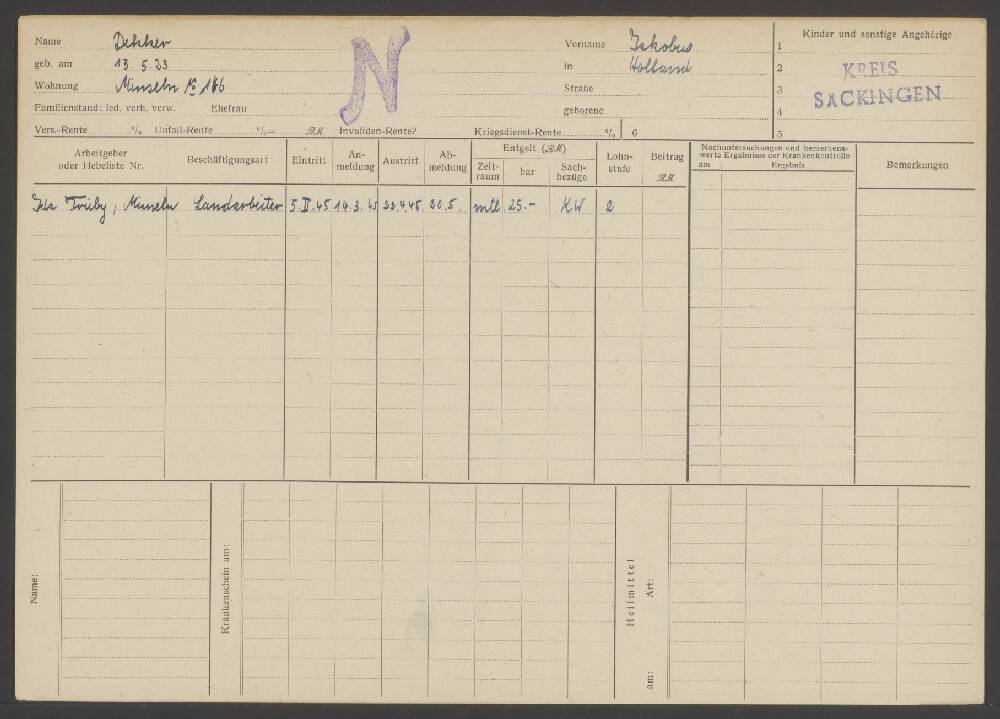 Name Dekker
Vorname Jakobus
Kinder und sonstige Angehörige
geb. am 13.5.23
in Holland
1
Wohnung Minseln No 186
Straße
2
KREIS
Familienstand: led. verh. verw. Ehefrau
geborene
3
SÄCKINGEN
4
Vers.-Rente % Unfall-Rente %= RM Invaliden-Rente? Kriegsdienst-Rente % 6
5
N
Arbeitgeber oder Hebeliste Nr.
Beschäftigungsart
Eintritt
An-meldung
Austritt
Ab-meldung
Entgelt (RM)
Zeit-raum
bar
Sach-bezüge
Lohn-stufe
Beitrag RM
Nachuntersuchungen und bemerkens-
werte Ergebnisse der Krankenkontrolle
am Ergebnis
Bemerkungen
Trüby, Minseln Landarbeiter 5.II.45 14.3.45 20.4.45 20.5. mtl 25.- KW 2
Name:
Krankenschein am:
Heilmittel
Art:
am: